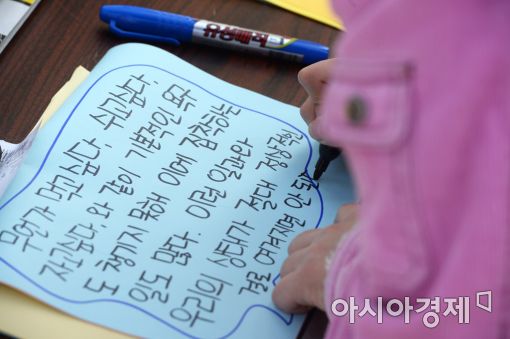 무언가 먹고 싶다, 수고싶다,
자고싶다, 와 같이 기본적인 욕구
도 챙기지 못해 이에 집착하는
일도 많다. 이런 일과와
우리의 상태가 절대 정상적인
걸로 여겨지면 안
아시아경제